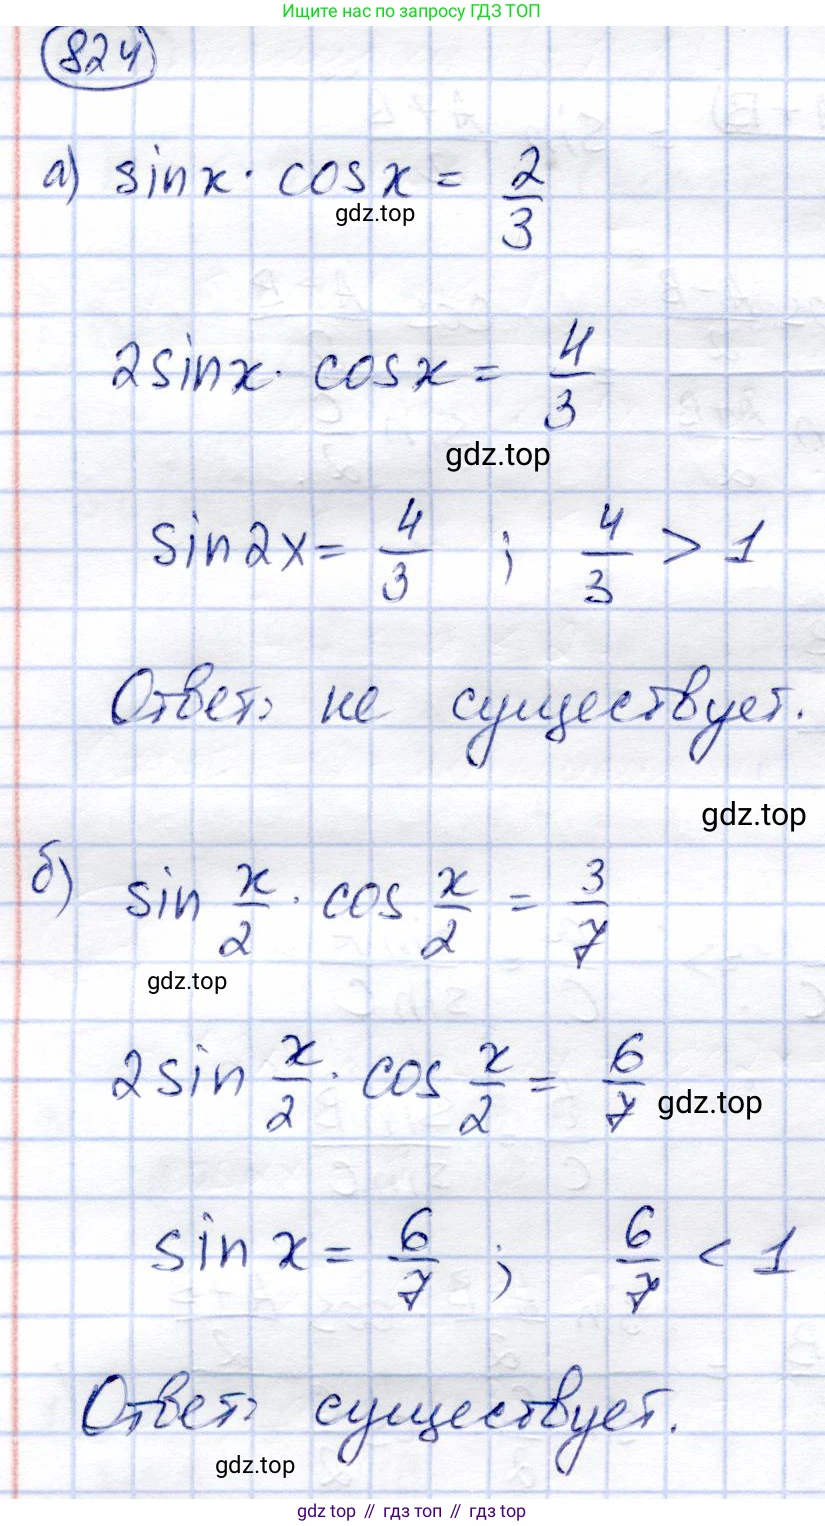 Ищите нас по запросу ГДЗ ТОП
824
а) sinx · cosx = 2/3
gdz.top
2sinx · cosx = 4/3
gdz.top
sin2x = 4/3 ; 4/3 > 1
Ответ: не существует.
gdz.top
б) sin x/2 · cos x/2 = 3/7
gdz.top
2sin x/2 · cos x/2 = 6/7
gdz.top
sin x = 6/7 ; 6/7 < 1
Ответ: существует.
gdz.top
gdz top // гдз топ // gdz.top